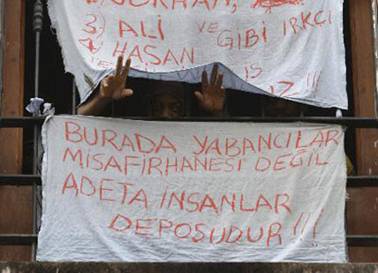 1) GÖKHAN,
3) ALİ VE GİBİ IRKCI
4) HASAN
İS
İZ !!!
BURADA YABANCILAR
MİSAFİRHANESİ DEĞİL
ADETA İNSANLAR
DEPOSUDUR!!!